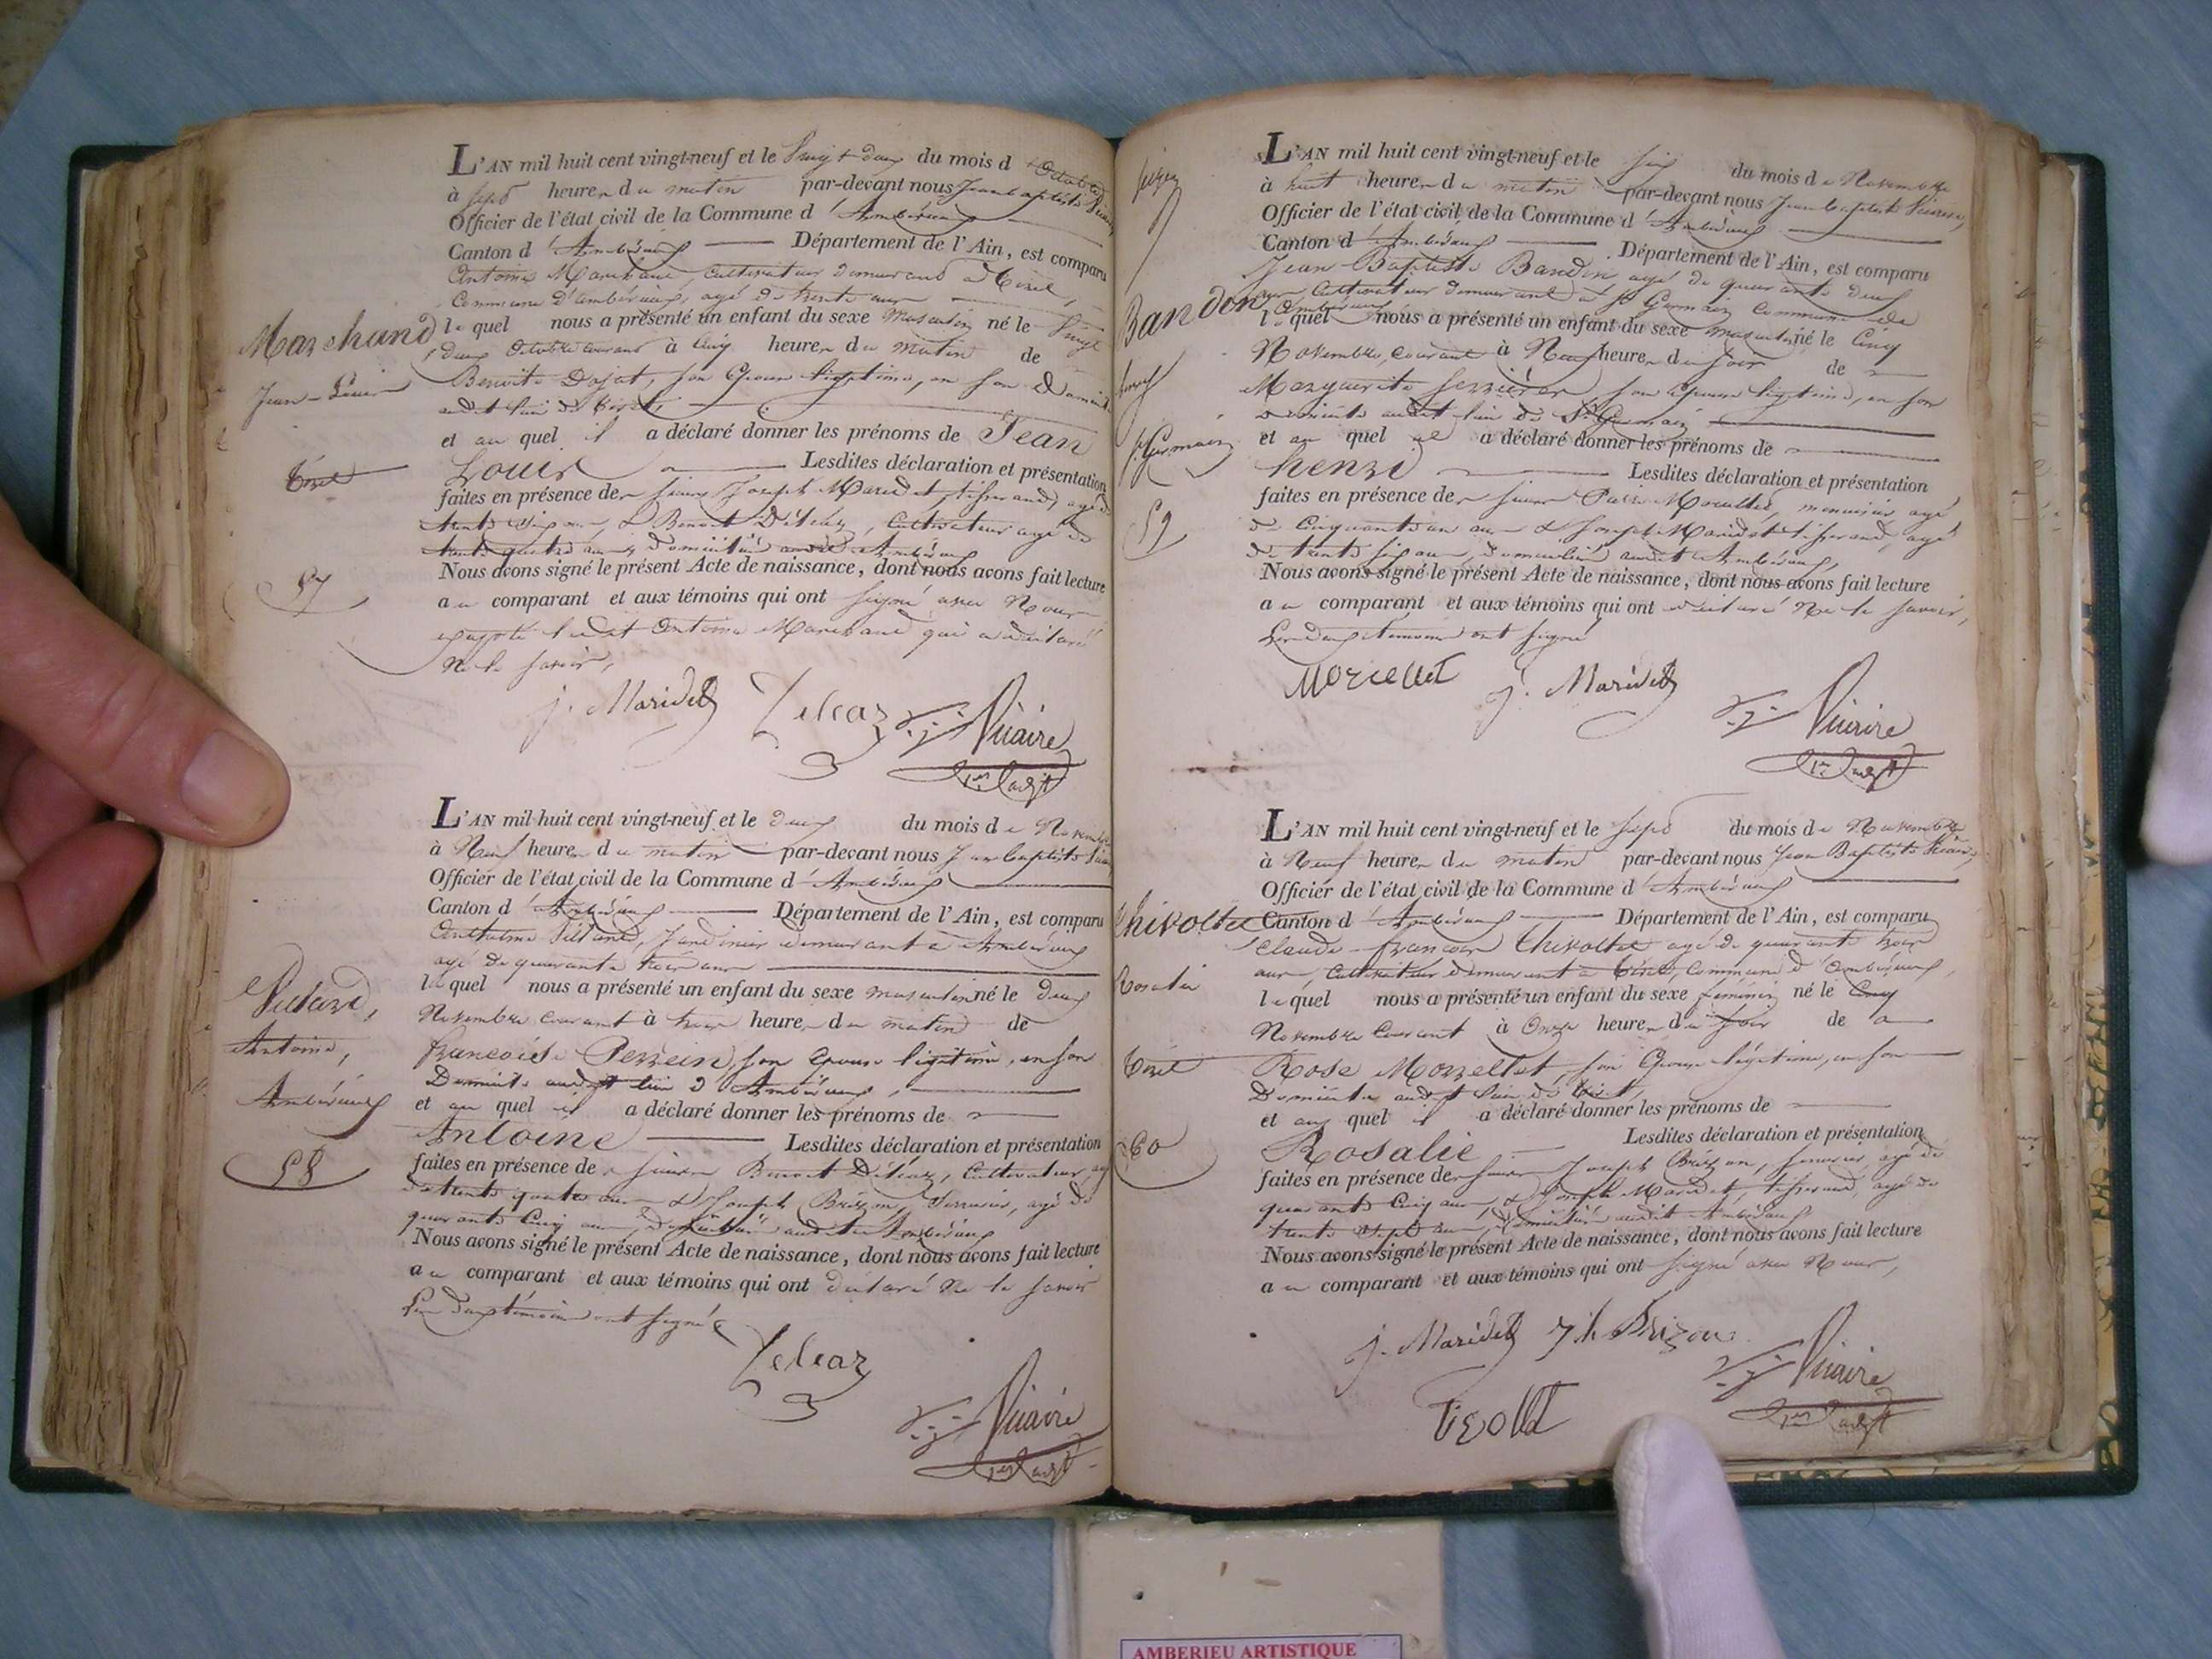 L'AN mil huit cent vingt-neuf et le Vingt deux du mois d'Octobre
à sept heures du matin par-devant nous Jean baptiste
Officier de l'état civil de la Commune d'Ambérieux
Canton d'Ambérieux Département de l'Ain, est comparu
Antoine Marchand, cultivateur demeurant à Tiret,
Commune d'ambérieux, agé de trente ans
Marchand
lequel nous a présenté un enfant du sexe masculin né le Vingt
deux Octobre courant à Cinq heures du matin de
Jean-Louis
Benoite Dojat, son Epouse légitime, en son Domicile
audit lieu de Tiret,
et au quel il a déclaré donner les prénoms de Jean
Tiret
Louis Lesdites déclaration et présentation
faites en présence des sieurs Joseph Maridet tisserand, agé de
trente six ans, & Benoit Déléaz, Cultivateur agé de
trente quatre ans, domiciliés Ambérieux
57
Nous avons signé le présent Acte de naissance, dont nous avons fait lecture
au comparant et aux témoins qui ont signé avec Nous
excepté ledit Antoine Marchand qui a déclaré
Ne le savoir,
j. Maridet Deleaz Vicaire
1er adjt
L'AN mil huit cent vingt-neuf et le deux du mois de Novembre
à Neuf heures du matin par-devant nous Jean baptiste
Officier de l'état civil de la Commune d'Ambérieux
Canton d'Ambérieux Département de l'Ain, est comparu
Anthelme, Jardinier demeurant à Ambérieux
agé de quarante trois ans
lequel nous a présenté un enfant du sexe masculin né le deux
Novembre courant à trois heures du matin de
Antoine,
françoise Perrein son Epouse légitime, en son
Domicile audit lieu d'Ambérieux,
Ambérieux
et au quel il a déclaré donner les prénoms de
Antoine Lesdites déclaration et présentation
58
faites en présence des sieurs Benoit Déléaz, Cultivateur, agé
de trente quatre ans & Joseph Brizon, Serrurier, agé de
quarante Cinq ans, domiciliés audit Ambérieux
Nous avons signé le présent Acte de naissance, dont nous avons fait lecture
au comparant et aux témoins qui ont déclaré Ne le savoir
Les deux témoins ont signé
Deleaz
Vicaire
1er adjt
L'AN mil huit cent vingt-neuf et le Six du mois de Novembre
à huit heures du matin par-devant nous Jean baptiste Vicaire,
Officier de l'état civil de la Commune d'Ambérieux
Canton d'Ambérieux Département de l'Ain, est comparu
Jean-Baptiste Bandon, agé de quarante deux
ans Cultivateur demeurant à St Germain Commune de
Bandon
lequel nous a présenté un enfant du sexe masculin né le Cinq
Novembre, Courant à Neuf heures du soir de
henry
Marguerite son Epouse légitime, en son
Domicile audit lieu de St Germain
St Germain
et au quel il a déclaré donner les prénoms de
henri Lesdites déclaration et présentation
faites en présence des sieurs menuisier agé
59
de Cinquante un ans & Joseph Maridet tisserand, agé
de trente six ans, domiciliés audit Ambérieux,
Nous avons signé le présent Acte de naissance, dont nous avons fait lecture
au comparant et aux témoins qui ont déclaré Ne le savoir,
Les deux témoins ont signé
j. Maridet
Vicaire
1er adjt
L'AN mil huit cent vingt-neuf et le Sept du mois de Novembre
à Neuf heures du matin par-devant nous Jean Baptiste Vicaire,
Officier de l'état civil de la Commune d'Ambérieux
Thivollet
Canton d'Ambérieux Département de l'Ain, est comparu
Claude-françois Thivollet agé de quarante trois
ans, Cultivateur demeurant à Tiret, Commune d'Ambérieux,
Rosalie
lequel nous a présenté un enfant du sexe féminin né le Cinq
Novembre Courant à Onze heures du soir de
Tiret
Rose Morellet son Epouse légitime, en son
Domicile audit lieu de Tiret,
et au quel il a déclaré donner les prénoms de
60
Rosalie Lesdites déclaration et présentation
faites en présence des sieurs Joseph Brizon, serrurier, agé de
quarante Cinq ans, & Joseph Maridet, tisserand, agé de
trente sept ans, domiciliés audit Ambérieux
Nous avons signé le présent Acte de naissance, dont nous avons fait lecture
au comparant et aux témoins qui ont signé avec Nous,
j. Maridet jh Brizon
Vicaire
1er adjt
AMBERIEU ARTISTIQUE